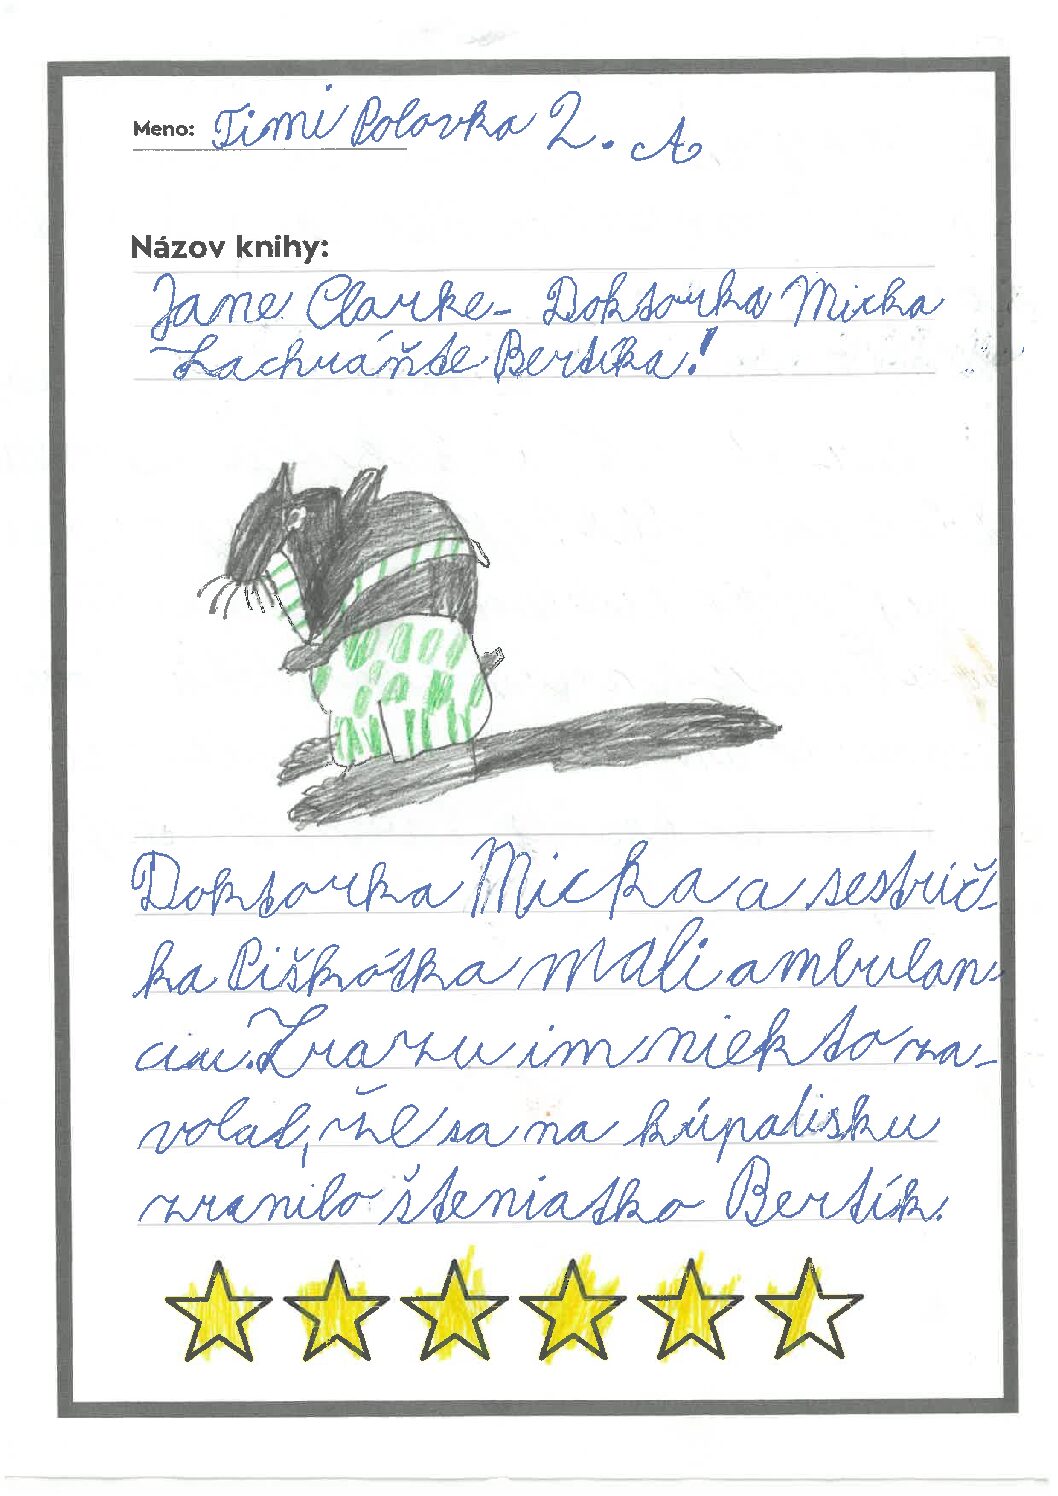 Meno: Timi Polovka 2. A
Názov knihy:
Jane Clarke- Doktorka Micka
Zachráňte Bertíka!
Doktorka Micka a sestrič-
ka Piškótka mali ambulan-
ciu. Zrazu im niekto za-
volal, že sa na kúpalisku
zranilo šteniatko Bertík.